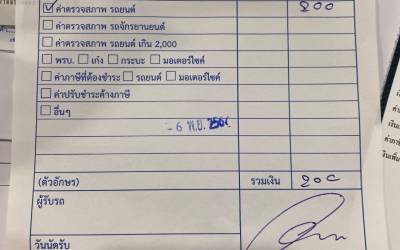 ☑ ค่าตรวจสภาพ รถยนต์ ๒๐๐
☐ ค่าตรวจสภาพ รถจักรยานยนต์
☐ ค่าตรวจสภาพ รถยนต์ เกิน 2,000
☐ พรบ. ☐ เก๋ง ☐ กระบะ ☐ มอเตอร์ไซค์
☐ ค่าภาษีที่ต้องชำระ ☐ รถยนต์ ☐ มอเตอร์ไซค์
☐ ค่าปรับชำระค้างภาษี
☐ อื่นๆ
- 6 พ.ย.
(ตัวอักษร) รวมเงิน ๒๐๐
ผู้รับรถ
วันนัดรับ